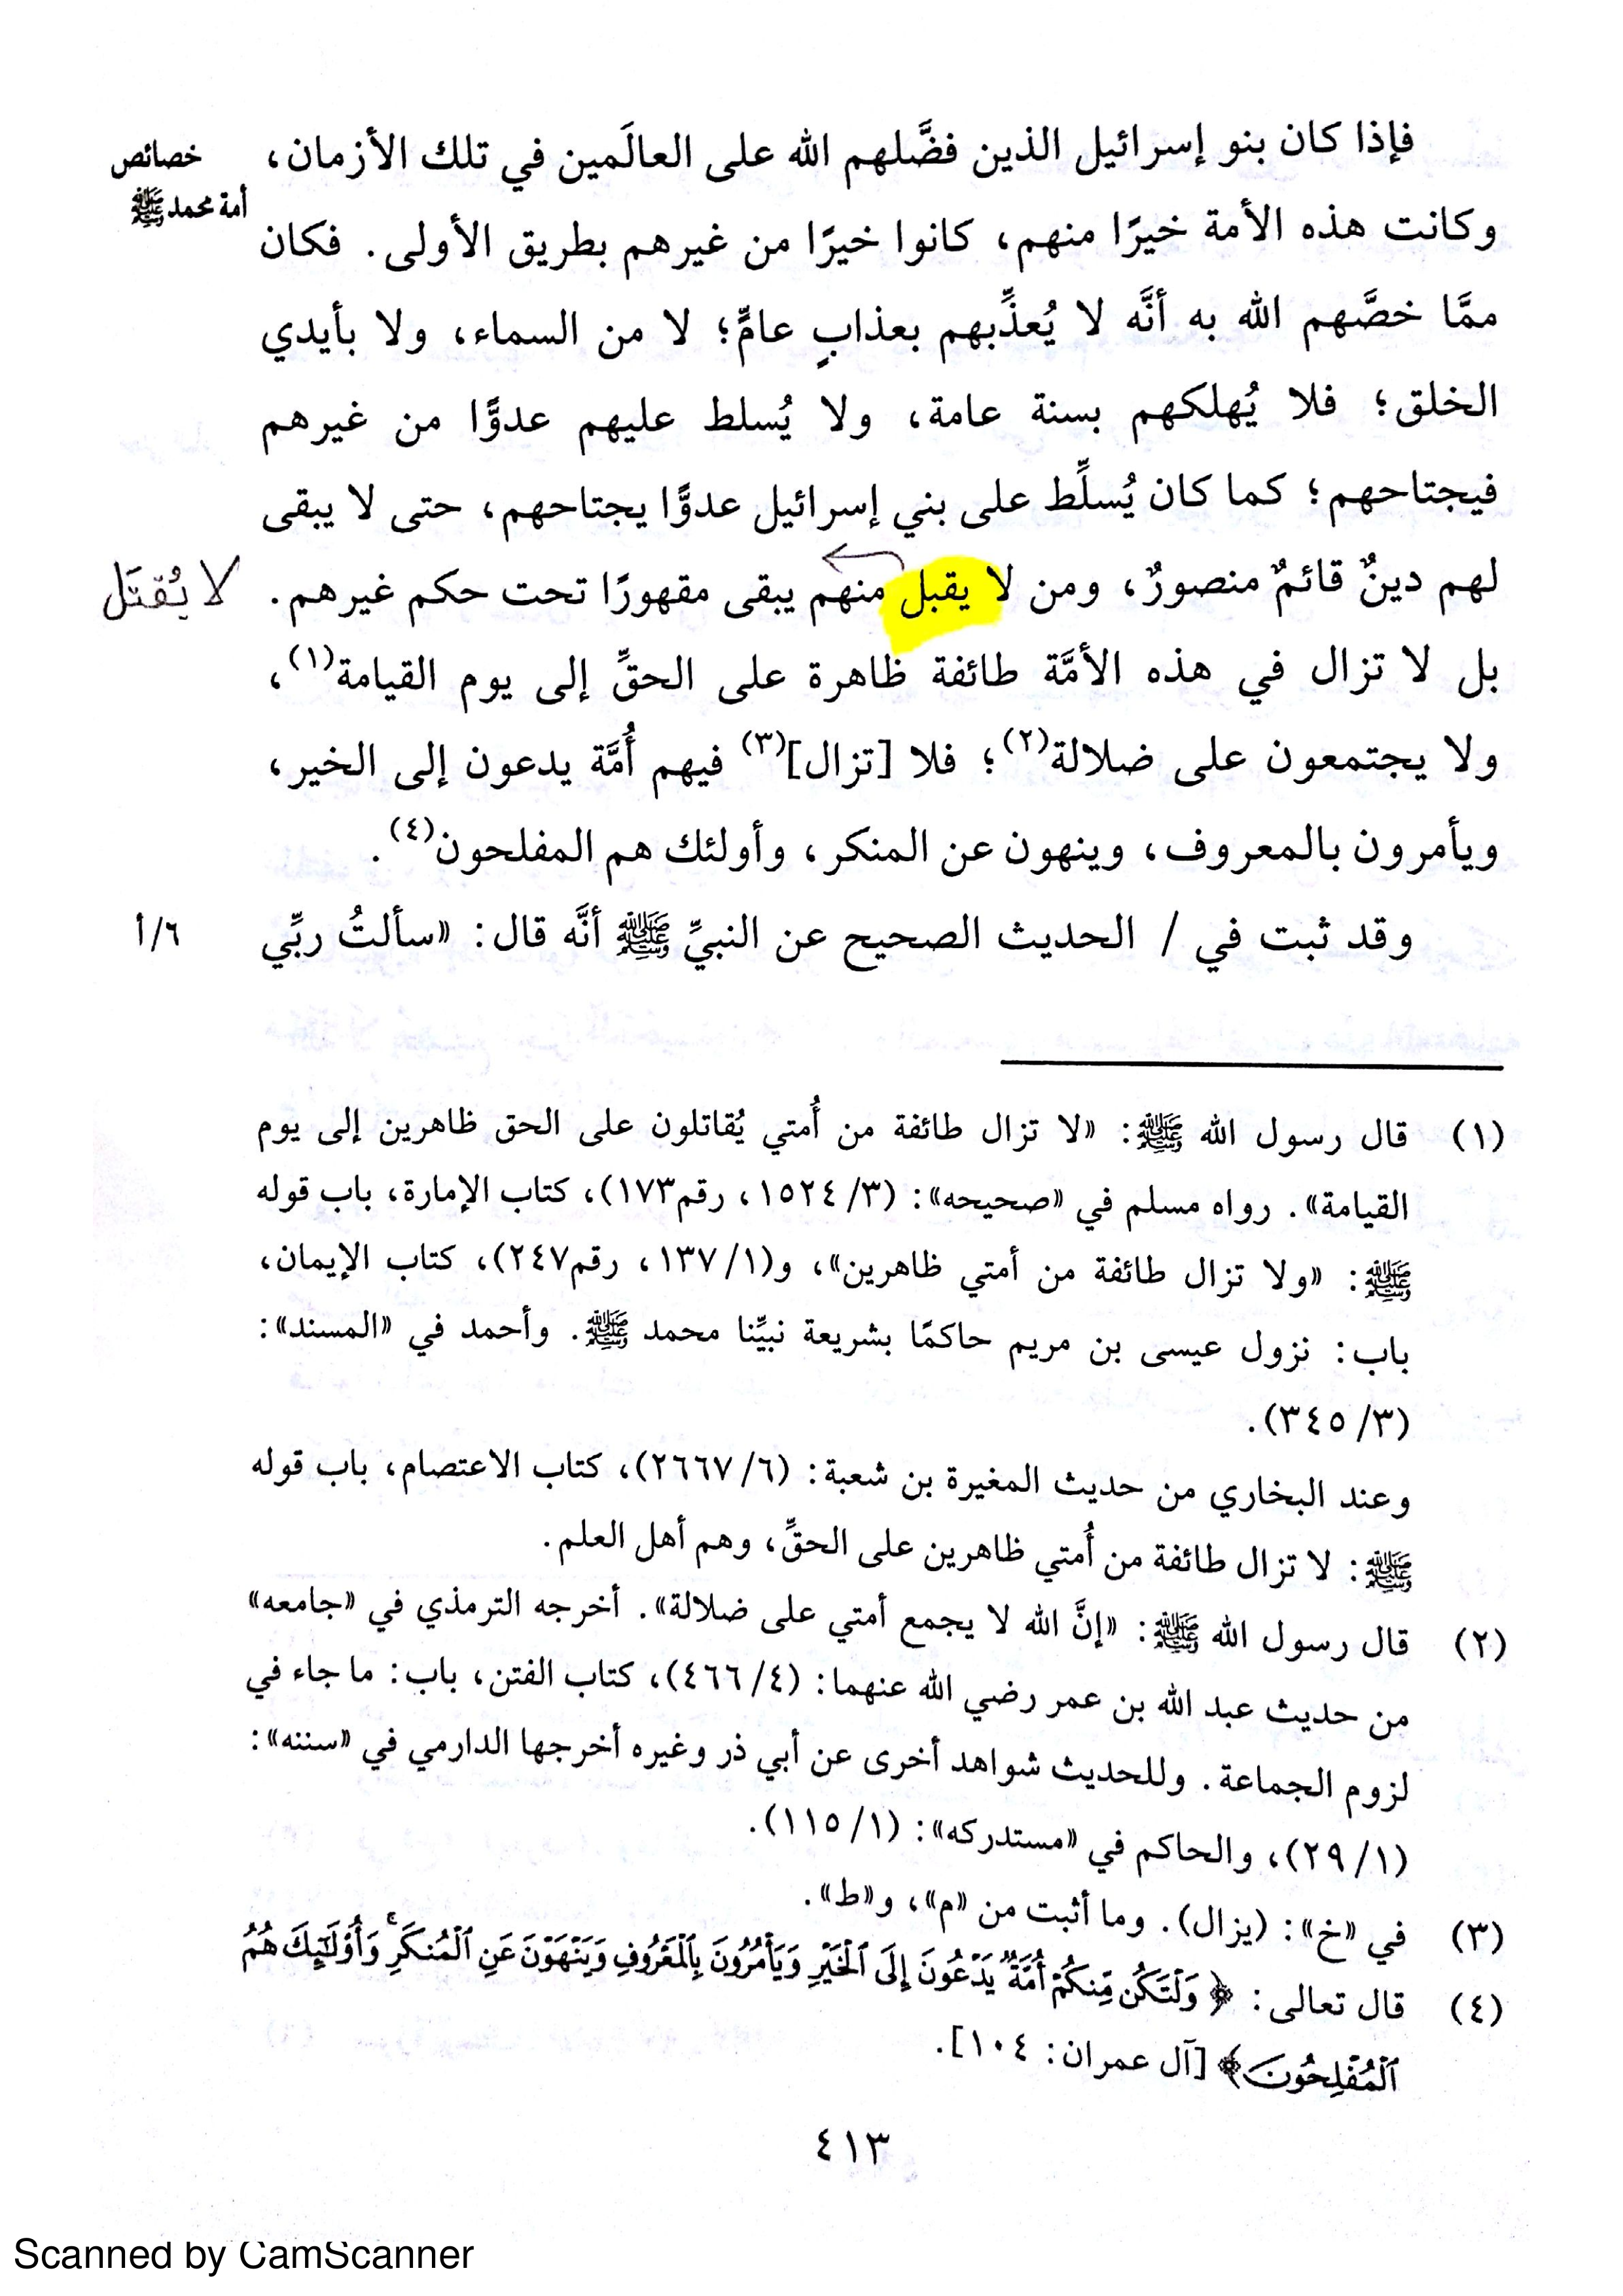 فإذا كان بنو إسرائيل الذين فضَّلهم الله على العالَمين في تلك الأزمان،
خصائص
أمة محمد ﷺ
وكانت هذه الأمة خيرًا منهم، كانوا خيرًا من غيرهم بطريق الأولى. فكان
ممَّا خصَّهم الله به أنَّه لا يُعذِّبهم بعذابٍ عامٍّ؛ لا من السماء، ولا بأيدي
الخلق؛ فلا يُهلكهم بسنة عامة، ولا يُسلط عليهم عدوًّا من غيرهم
فيجتاحهم؛ كما كان يُسلِّط على بني إسرائيل عدوًّا يجتاحهم، حتى لا يبقى
لهم دينٌ قائمٌ منصورٌ، ومن لا يقبل منهم يبقى مقهورًا تحت حكم غيرهم.
لا يُقتَل
بل لا تزال في هذه الأمَّة طائفة ظاهرة على الحقِّ إلى يوم القيامة(١)،
ولا يجتمعون على ضلالة(٢)؛ فلا [تزال](٣) فيهم أُمَّة يدعون إلى الخير،
ويأمرون بالمعروف، وينهون عن المنكر، وأولئك هم المفلحون(٤).
وقد ثبت في / الحديث الصحيح عن النبيِّ ﷺ أنَّه قال: «سألتُ ربِّي
٦/أ
(١) قال رسول الله ﷺ: «لا تزال طائفة من أُمتي يُقاتلون على الحق ظاهرين إلى يوم
القيامة». رواه مسلم في «صحيحه»: (٣/ ١٥٢٤، رقم١٧٣)، كتاب الإمارة، باب قوله
ﷺ: «ولا تزال طائفة من أمتي ظاهرين»، و(١/ ١٣٧، رقم٢٤٧)، كتاب الإيمان،
باب: نزول عيسى بن مريم حاكمًا بشريعة نبيِّنا محمد ﷺ. وأحمد في «المسند»:
(٣/ ٣٤٥).
وعند البخاري من حديث المغيرة بن شعبة: (٦/ ٢٦٦٧)، كتاب الاعتصام، باب قوله
ﷺ: لا تزال طائفة من أُمتي ظاهرين على الحقِّ، وهم أهل العلم.
(٢) قال رسول الله ﷺ: «إنَّ الله لا يجمع أمتي على ضلالة». أخرجه الترمذي في «جامعه»
من حديث عبد الله بن عمر رضي الله عنهما: (٤/ ٤٦٦)، كتاب الفتن، باب: ما جاء في
لزوم الجماعة. وللحديث شواهد أخرى عن أبي ذر وغيره أخرجها الدارمي في «سننه»:
(١/ ٢٩)، والحاكم في «مستدركه»: (١/ ١١٥).
(٣) في «خ»: (يزال). وما أثبت من «م»، و«ط».
(٤) قال تعالى: ﴿وَلْتَكُن مِّنكُمْ أُمَّةٌ يَدْعُونَ إِلَى ٱلْخَيْرِ وَيَأْمُرُونَ بِٱلْمَعْرُوفِ وَيَنْهَوْنَ عَنِ ٱلْمُنكَرِ ۚ وَأُو۟لَـٰٓئِكَ هُمُ
ٱلْمُفْلِحُونَ﴾ [آل عمران: ١٠٤].
٤١٣
Scanned by CamScanner